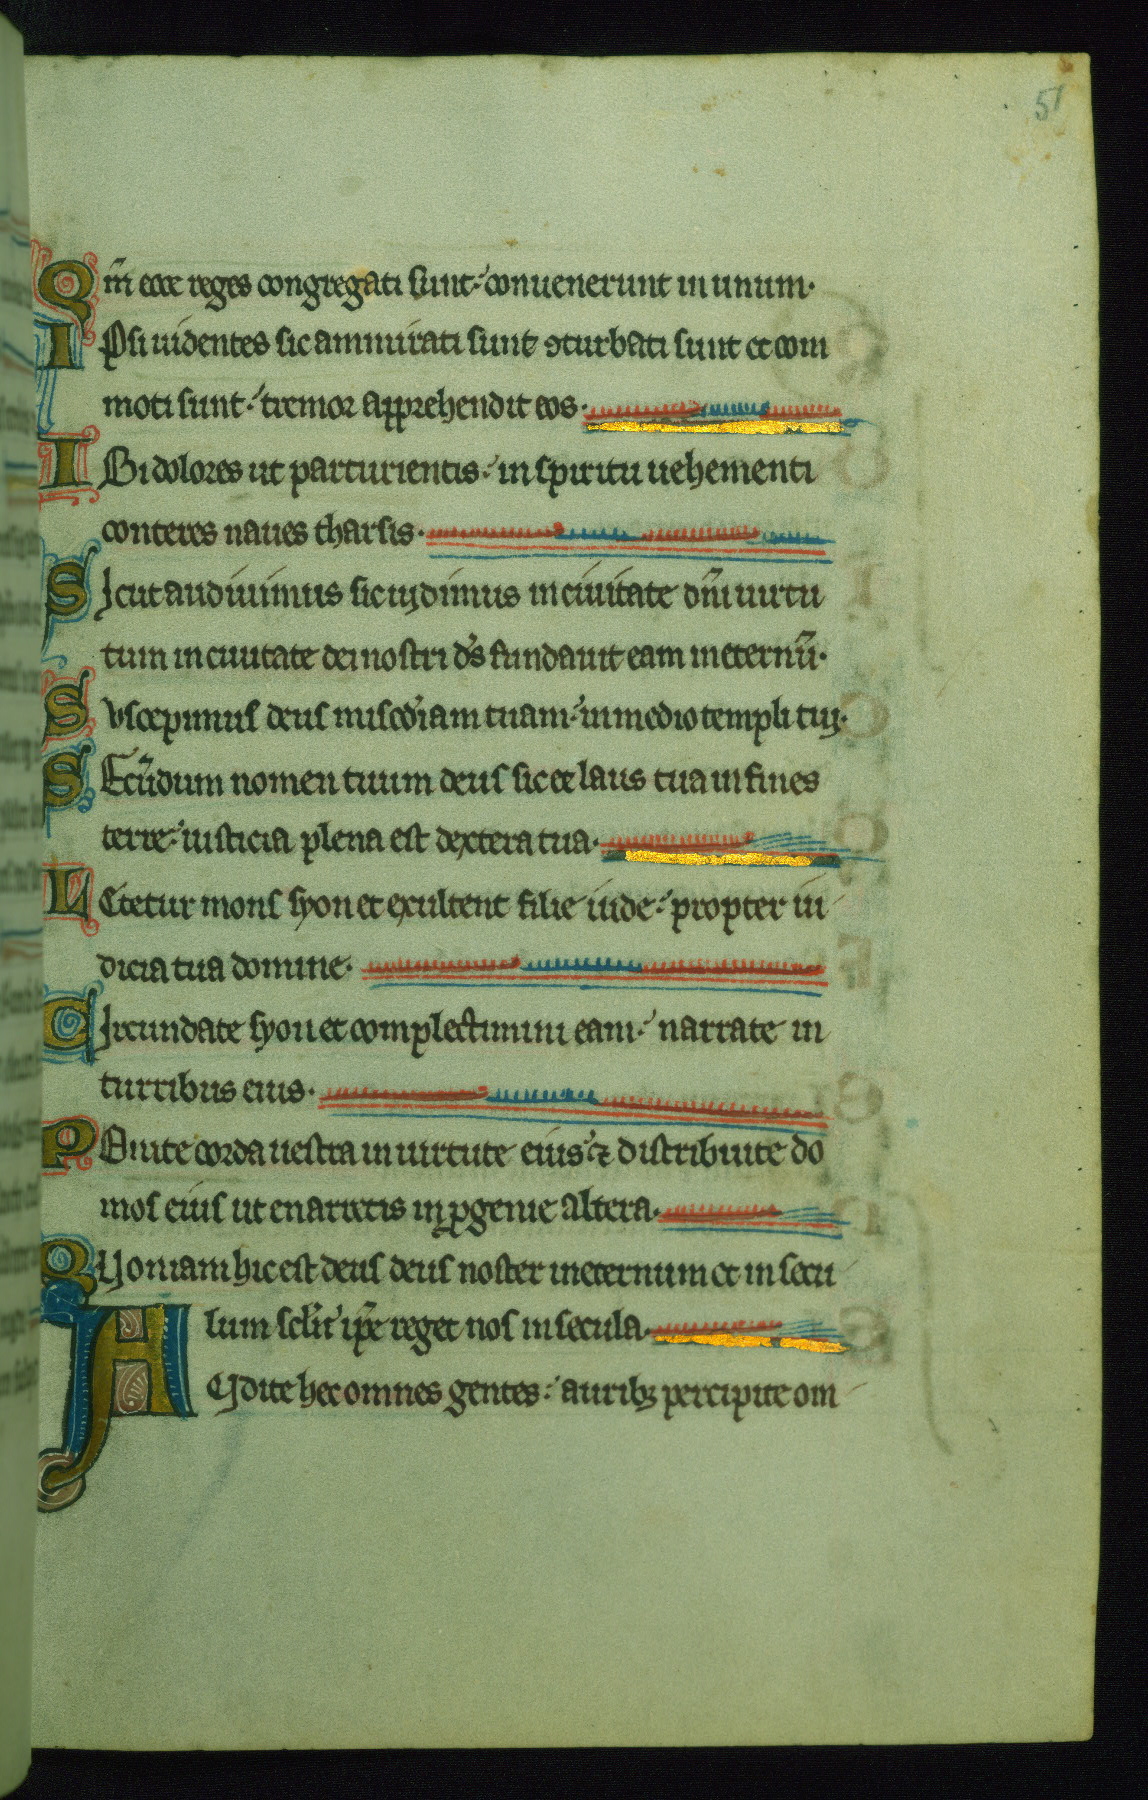 51
Qm̄ ecce reges congregati sunt: conuenerunt in unum.
Ipsi uidentes sic ammirati sunt ꝯturbati sunt et com
moti sunt: tremor apprehendit eos.
Ibi dolores ut parturientis: in spiritu uehementi
conteres naues tharsis.
Sicut audiuimus sic uydimus in ciuitate dn̄i uirtu
tum in ciuitate dei nostri ds̄ fundauit eam in eternū.
Suscepimus deus misćdiam tuam: in medio templi tuy.
Secūdum nomen tuum deus sic et laus tua in fines
terre: iusticia plena est dextera tua.
Letetur mons syon et exultent filie iude: propter iu
dicia tua domine.
Circundate syon et complectimini eam: narrate in
turribus eius.
Ponite corda uestra in uirtute eius: ⁊ distribuite do
mos eius ut enarretis in ꝓgenie altera.
Quoniam hic est deus deus noster in eternum et in secu
lum sclī: ip̄e reget nos in secula.
Audite hec omnes gentes: auribꝫ percipite om